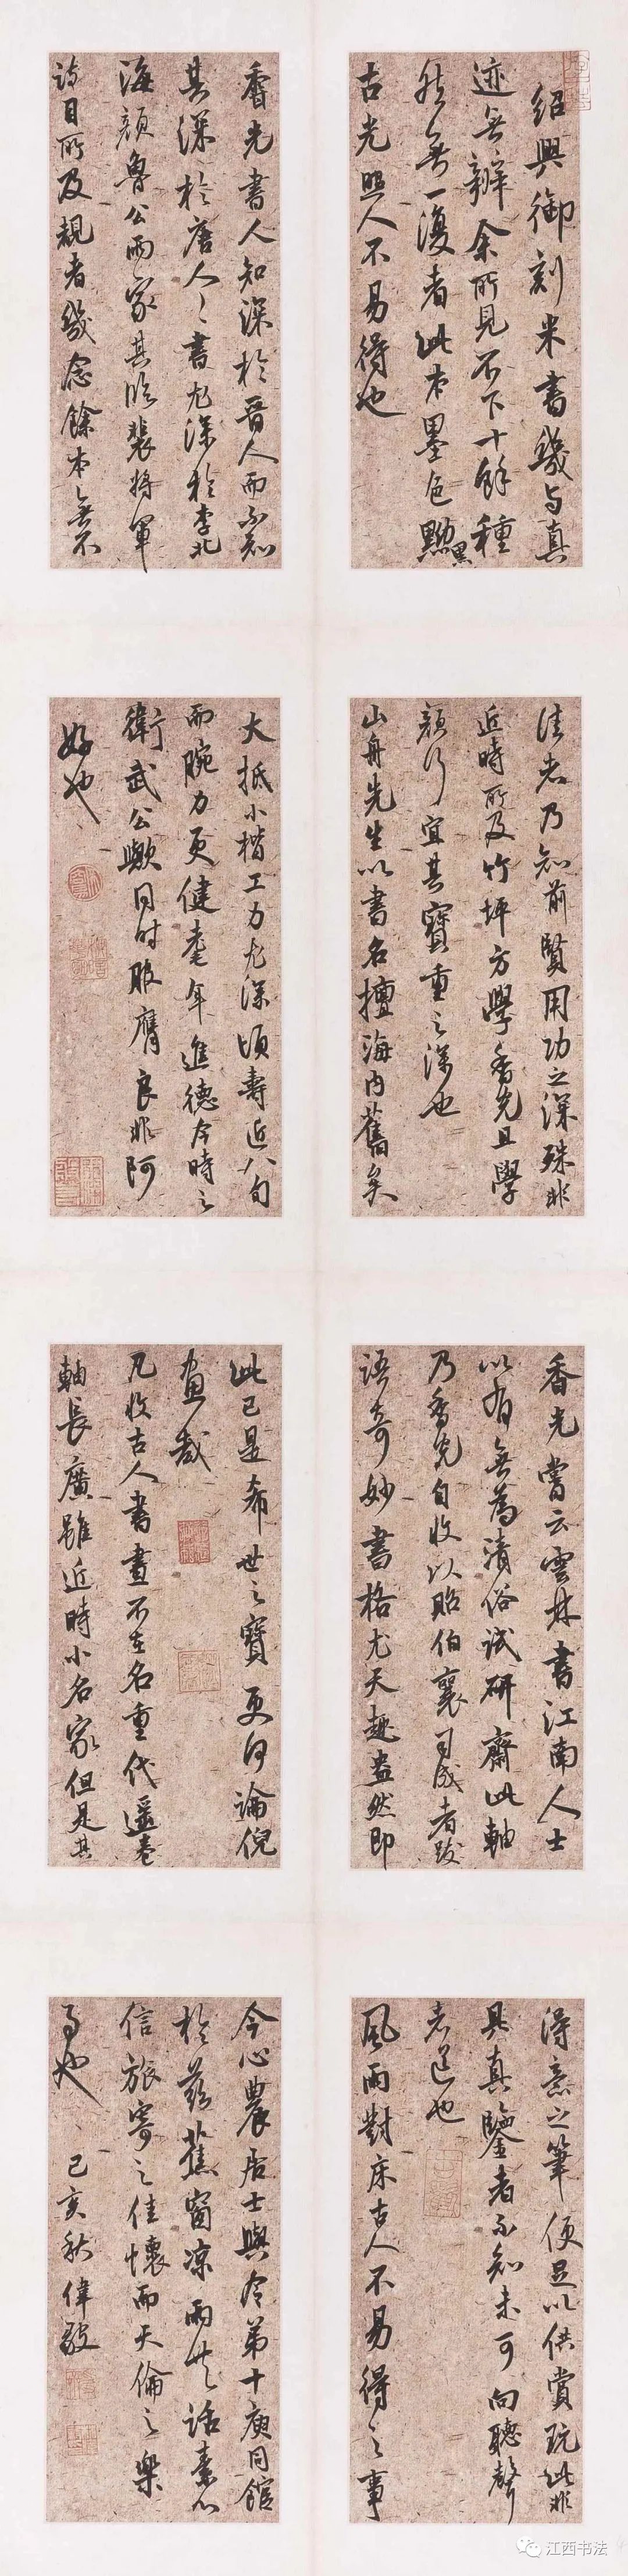 紹興御刻米書幾与真
迹無辨余所見不下十餘種
然無一復者此本墨色黝黑
古光照人不易得也
香光書人知深於晉人而不知
其深於唐人々書尤深於李北
海顏魯公两家其臨裴將軍
詩目所及覩者幾念餘本無不
佳者乃知前賢用功之深殊非
近時所及竹坪方學香光且學
顏行宜其寶重之深也
山舟先生以書名擅海内舊矣
大抵小楷工力尤深頃壽近八旬
而腕力更健耄年進德今時之
衛武公歟同時服膺良非阿
好也
香光嘗云雲林書江南人士
以有無為清俗試研齋此軸
乃香光自收以貽伯襄司成者跋
語奇妙書格尤天趣盎然即
此已是希世之寶更何論倪
畫哉
凡收古人書畫不在名重代遥卷
軸長廣雖近時小名家但是其
得意之筆便足以供賞玩此非
具真鑒者不知未可向聽聲
者道也
風雨對床古人不易得之事
今心農居士與令弟十庚同館
於兹蕉窗凉雨共話素心
信旅寄之佳懷而天倫之樂
事也
己亥秋偉毅
江西书法